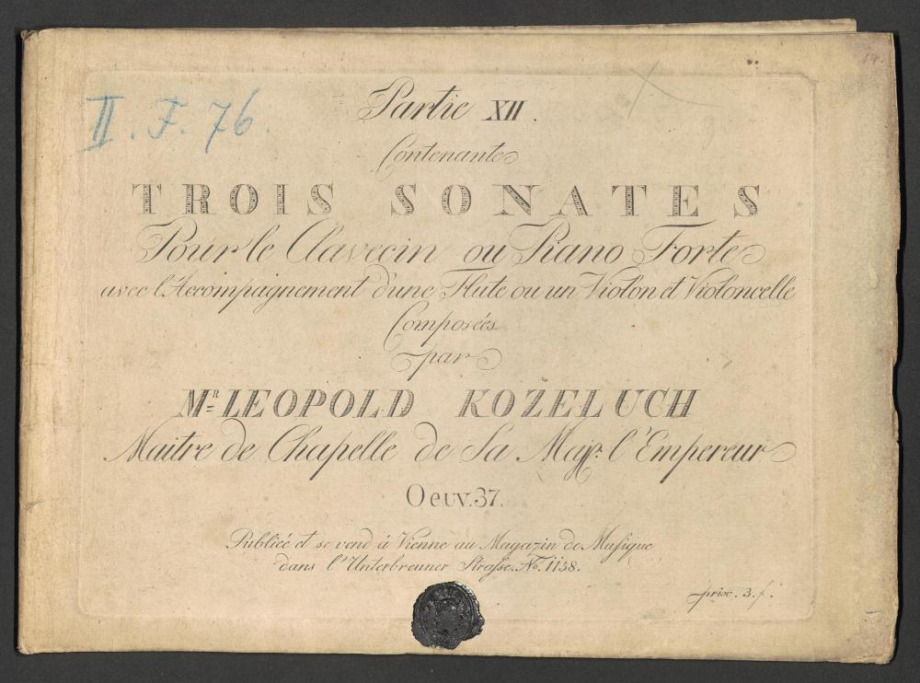 II. F. 76.
Partie XII.
Contenante
TROIS SONATES
Pour le Clavecin ou Piano Forte
avec l'Accompagnement d'une Flute ou un Violon et Violoncelle
Composées
par
MR. LEOPOLD KOŻELUCH
Maitre de Chapelle de Sa Majr. l'Empereur
Oeuv.37.
Publiée et se vend à Vienne au Magazin de Musique
dans l'Unterbreuner Strasse. No. 1158.
prix. 3. f.